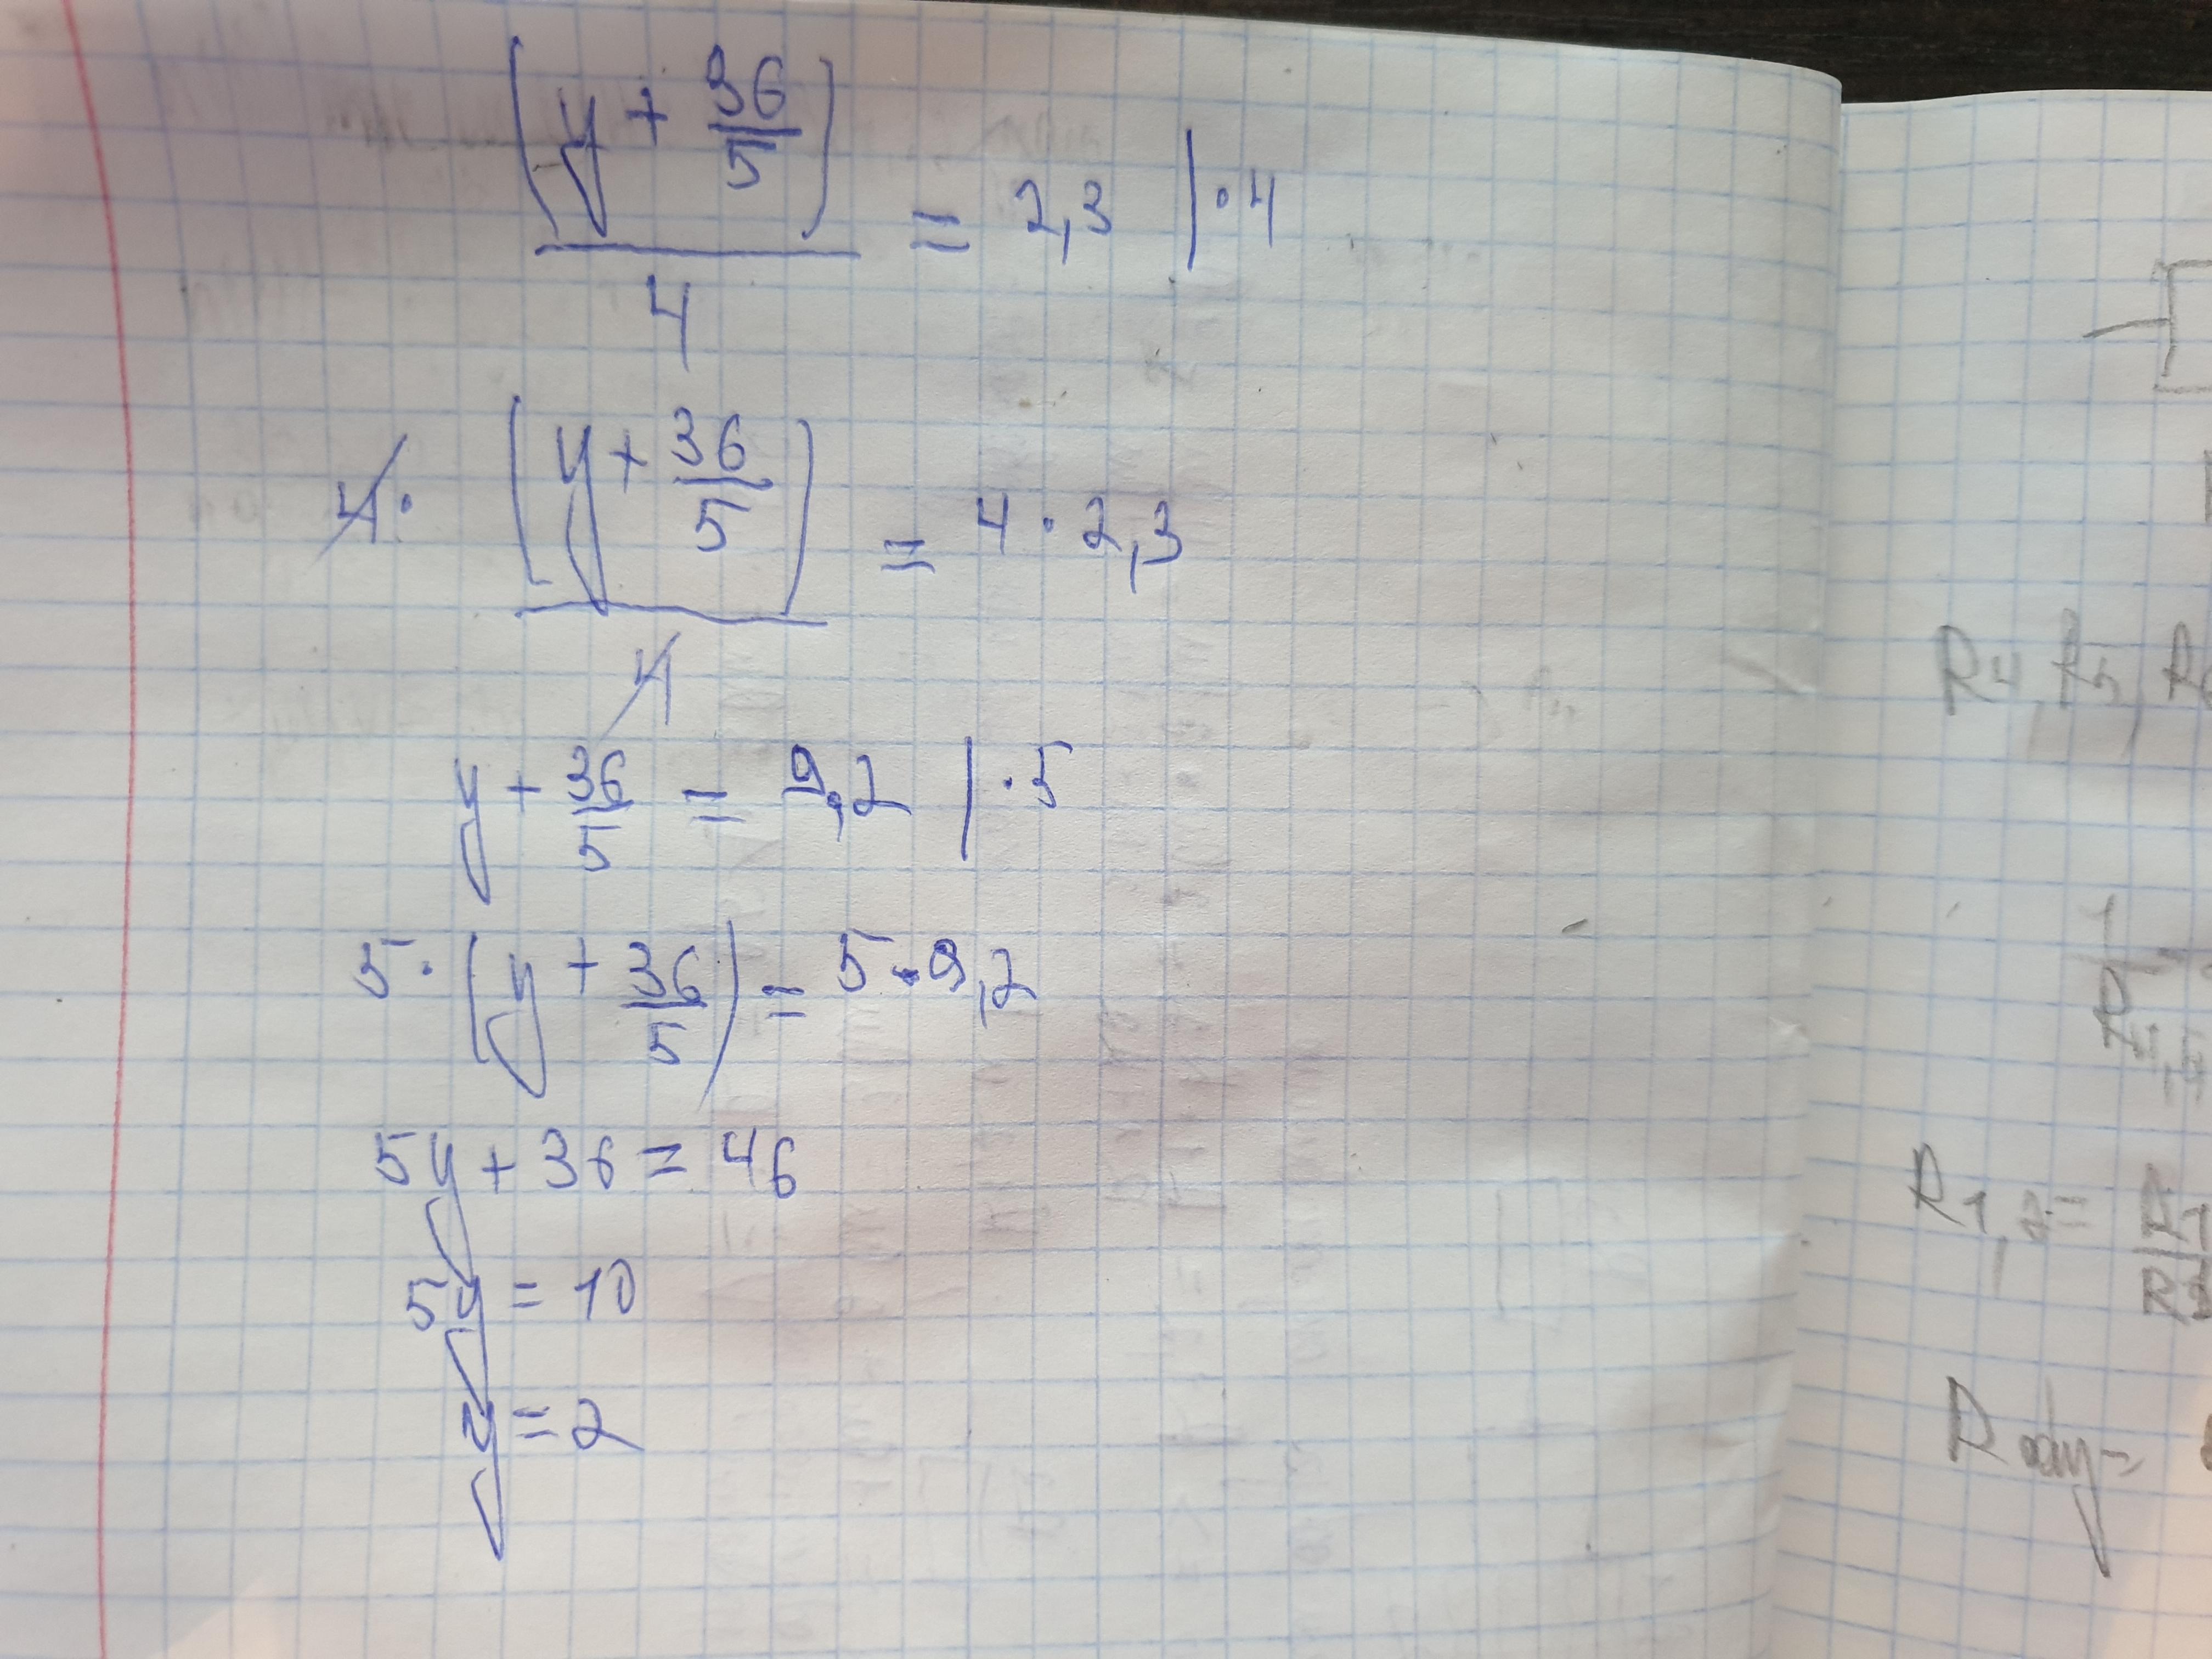 (y + 36/5)/4 = 2,3 | · 4
4 · (y + 36/5)/4 = 4 · 2,3
y + 36/5 = 9,2 | · 5
5 · (y + 36/5) = 5 · 9,2
5y + 36 = 46
5y = 10
y = 2
R4, R5, R
R1,2 =